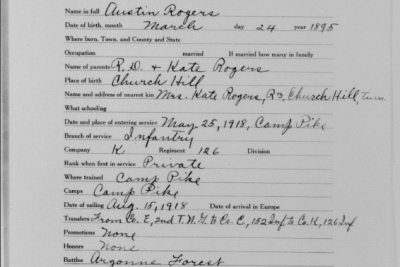 Name in full Austin Rogers
Date of birth, month March day 24 year 1895
Where born, Town, and County and State
Occupation married If married how many in family
Name of parents R. D. & Kate Rogers
Place of birth Church Hill
Name and address of nearest kin Mrs. Kate Rogers, R3, Church Hill, Tenn.
What schooling
Date and place of entering service May 25, 1918, Camp Pike
Branch of service Infantry
Company K Regiment 126 Division
Rank when first in service Private
Where trained Camp Pike
Camps Camp Pike
Date of sailing Aug. 15, 1918 Date of arrival in Europe
Transfers From Co. E, 2nd T. N. G. to Co. E, 152 Inf to Co. K, 126 Inf
Promotions None
Honors None
Battles Argonne Forest